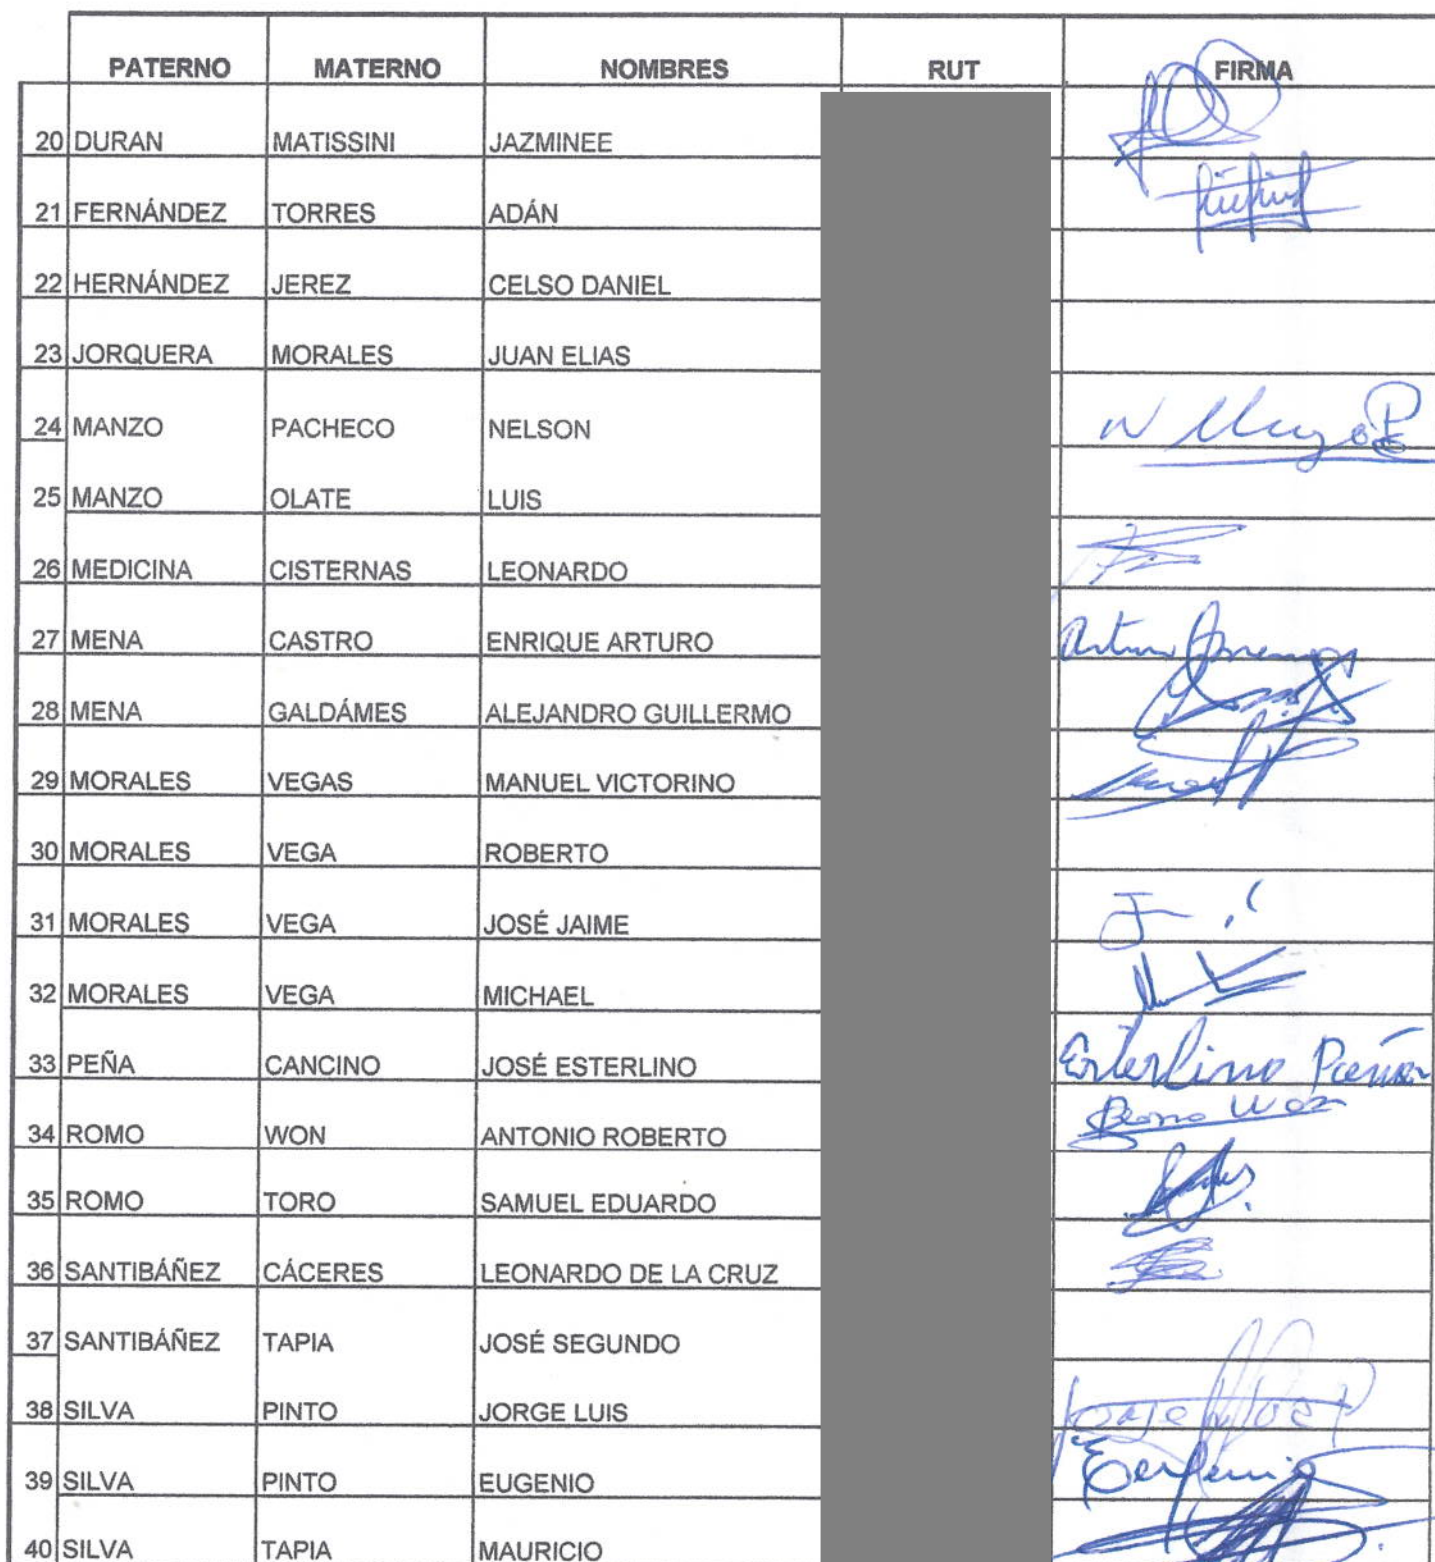 PATERNO MATERNO NOMBRES RUT FIRMA
20 DURAN MATISSINI JAZMINEE
21 FERNÁNDEZ TORRES ADÁN
22 HERNÁNDEZ JEREZ CELSO DANIEL
23 JORQUERA MORALES JUAN ELIAS
24 MANZO PACHECO NELSON
25 MANZO OLATE LUIS
26 MEDICINA CISTERNAS LEONARDO
27 MENA CASTRO ENRIQUE ARTURO Arturo Mena
28 MENA GALDÁMES ALEJANDRO GUILLERMO
29 MORALES VEGAS MANUEL VICTORINO
30 MORALES VEGA ROBERTO
31 MORALES VEGA JOSÉ JAIME
32 MORALES VEGA MICHAEL
33 PEÑA CANCINO JOSÉ ESTERLINO Esterlino Peña
34 ROMO WON ANTONIO ROBERTO Romo Won
35 ROMO TORO SAMUEL EDUARDO
36 SANTIBÁÑEZ CÁCERES LEONARDO DE LA CRUZ
37 SANTIBÁÑEZ TAPIA JOSÉ SEGUNDO
38 SILVA PINTO JORGE LUIS
39 SILVA PINTO EUGENIO Eugenio
40 SILVA TAPIA MAURICIO